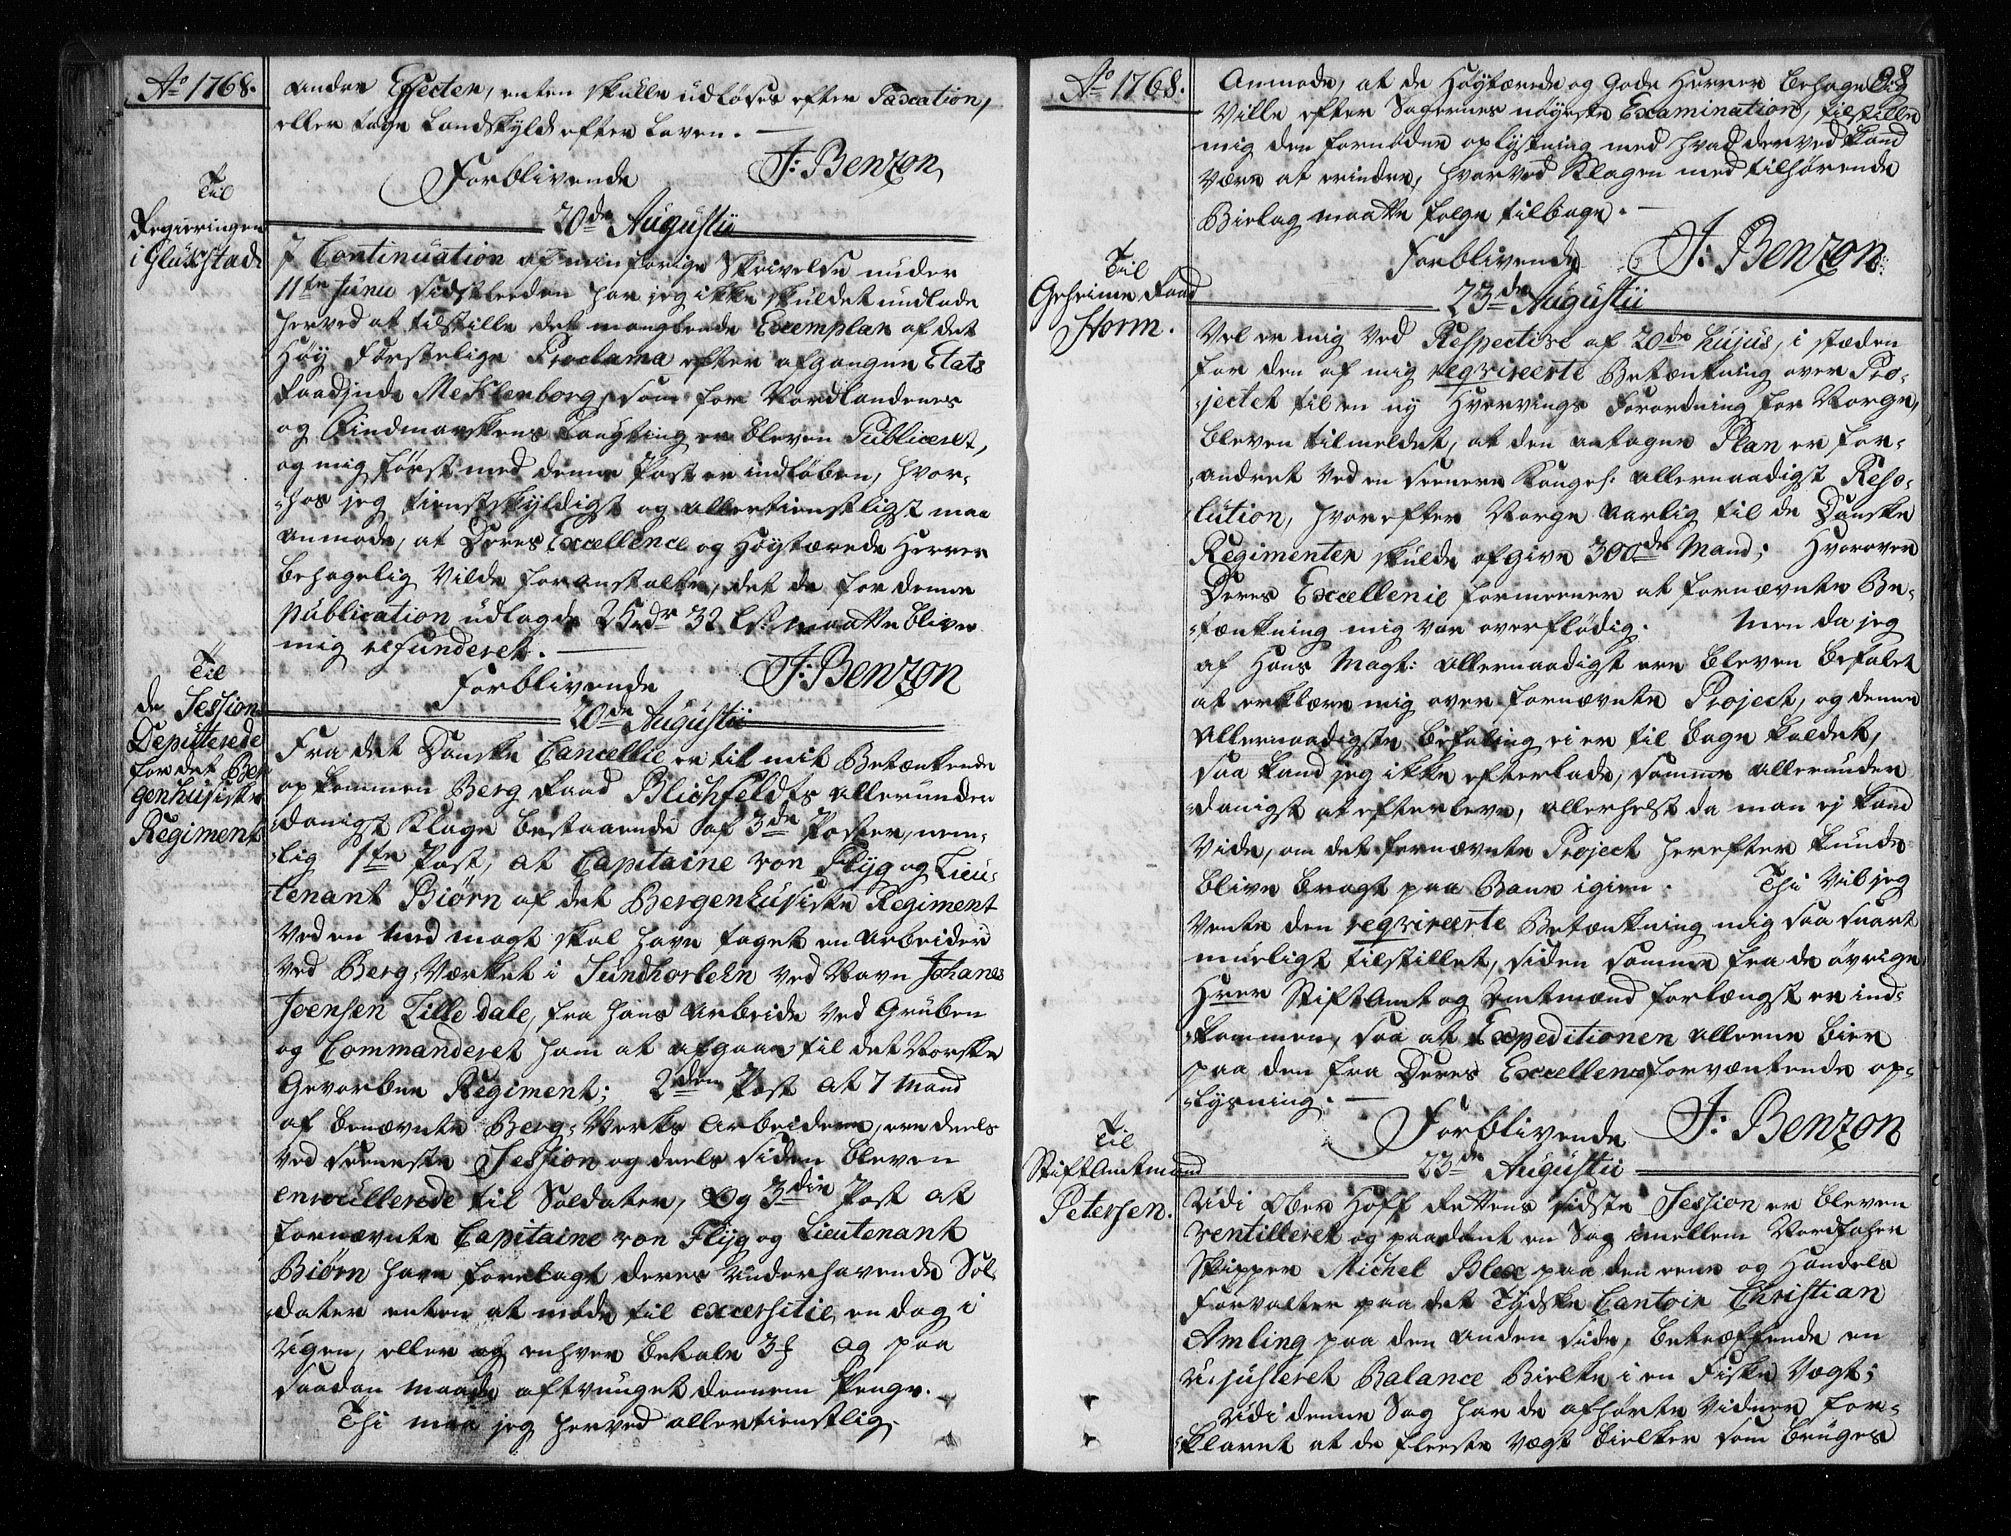 Ao 1768.
andre Effecter, enten skulle udløses efter Taxation,
eller tage Landskyld efter Loven.
Forblivende J: Benzon
Til
Regieringen
i Glükstad
20de Augustii
I Continuation af min forige Skrivelse under
11te Junii sidstleeden har jeg ikke skuldet undlade
herved at tilstille det manglende Exemplar af det
Høy Førstelige Proclama efter afgangne Etats
Raadinde Meklenborg, som for Nordlandenes
og Findmarkens Laugting er bleven Publiceret,
og mig først med denne Post er indløben, hvor-
-hos jeg tienstskyldigst og allertienstligst maa
anmode, at Deres Excellence og Høystærede Herrer
behagelig vilde foranstalte, det de for denne
publication udlagde 25 rdr 32 lst. maatte blive
mig refunderet.
Forblivende J: Benzon
Til
de Session
Deputerede
for det Ber
genhusiske
Regiment
20de Augustii
Fra det Danske Cancellie er til mit Betænkende
opkommen Berg Raad Blichfeldts allerunder
danigst Klage bestaaende af 3de Poster, nem-
-lig 1te Post, at Capitaine von Flyg og Lieu-
tenant Biørn af det Bergenhusiske Regiment
ved en med magt skal have taget en Arbeider
ved Berg-Værket i Sundhorlehn ved Navn Johanes
Joensen Lilledale, fra hans Arbeide ved Gruben
og Commanderet ham at afgaae til det Norske
Gevorbne Regiment; 2den Post at 7 Mand
af benævnte Berg-Verks Arbeidere, ere deels
ved seeneste Session og deels siden bleven
enroullerede til Soldater, Og 3die Post at
fornævnte Capitaine von Flyg og Lieutenant
Biørn have forelagt deres Underhavende Sol
dater enten at møde til excersitie en dag i
Ugen, eller og enhver betale 3 ʃ og paa
saadan maade aftvunget dennem Penge.
Thi maa jeg herved allertienstlig
Ao 1768.
98
Anmode, at de Høystærede og Gode Herrer behagelig
Ville efter Sagernes nøyeste Examination, tilstille
mig den fornøden oplysning med hvad derved kand
være at erindre, hvorved Klagen med tilhørende
Bielag maatte følge tilbage.
Forblivende J: Benzon
Til
Geheime Raad
Storm.
23de Augustii
Vel er mig ved Respective af 20de hujus, i stæden
for den af mig reqvireerte Betænkning over Pro-
jectet til en ny Hvervings Forordning for Norge,
bleven tilmeldet, at den antagne Plan er for-
-andret ved en seenere Kongel: allernaadigst Reso-
lution, hvorefter Norge aarlig til de Danske
Regimenter skulde afgive 300de Mand; Hvorover
Deres Excellence formeener at fornævnte Be-
-tænkning mig var overflødig. Men da jeg
af Hans Mayt: allernaadigst ere bleven befalet
at erklære mig over fornævnte Project, og denne
allernaadigste befaling ei er til bage kaldet,
saa kand jeg ikke efterlade, samme allerunder
-danigst at efterleve, allerhelst da man ej kand
vide, om det fornævnte Project herefter kunde
blive bragt paa Bane igien. Thi vil jeg
vente den reqvireerte Betænkning mig saa snart
mueligt tilstillet, siden samme fra de øvrige
Hrer Stiftamt og Amtmænd forlængst er ind-
-kommen, saa at Expeditionen alleene bier
paa den fra Deres Excellence forventende op-
-lysning.
Forblivende J: Benzon
Til
Stiftamtmand
Petersen.
23de Augustii
Udi Ober Hoff Rettens sidste Session er bleven
ventilleret og paadømt en Sag imellem Nordfahrer
Skipper Michel Blex paa den eene og Handels
Forvalter paa det Tydske Cantoir Christian
Amling paa den anden side, betreffende en
U-justeret Balance Bielke i en Fiske Vægt;
Udi denne Sag har de afhørte Vidner for-
-klaret at de fleeste Vægt bielker som bruges